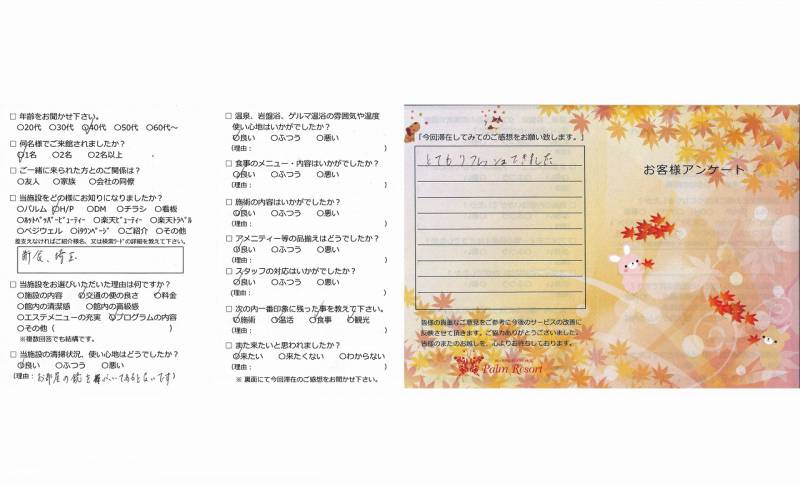 □ 年齢をお聞かせ下さい。
○20代 ○30代 ○40代 ○50代 ○60代～
□ 何名様でご来館されましたか？
○1名 ○2名 ○2名以上
□ ご一緒に来られた方とのご関係は？
○友人 ○家族 ○会社の同僚
□ 当施設をどの様にお知りになりましたか？
○パルム ○H/P ○DM ○チラシ ○看板
○ホットペッパービューティー ○楽天ビューティー ○楽天トラベル
○ベジウェル ○iタウンページ ○ご紹介 ○その他
差支えなければご紹介様名、又は検索ワードの詳細を教えて下さい。
断食、埼玉
□ 当施設をお選びいただいた理由は何ですか？
○施設の内容 ○交通の便の良さ ○料金
○館内の清潔感 ○館内の高級感
○エステメニューの充実 ○プログラムの内容
○その他（ ）
※複数回答でも結構です。
□ 当施設の清掃状況、使い心地はどうでしたか？
○良い ○ふつう ○悪い
(理由： お部屋の鏡を
□ 温泉、岩盤浴、ゲルマ温浴の雰囲気や温度
使い心地はいかがでしたか？
○良い ○ふつう ○悪い
(理由： )
□ 食事のメニュー・内容はいかがでしたか？
○良い ○ふつう ○悪い
(理由： )
□ 施術の内容はいかがでしたか？
○良い ○ふつう ○悪い
(理由： )
□ アメニティー等の品揃えはどうでしたか？
○良い ○ふつう ○悪い
□ スタッフの対応はいかがでしたか？
○良い ○ふつう ○悪い
(理由： )
□ 次の内一番印象に残った事を教えて下さい。
○施術 ○温活 ○食事 ○観光
(理由： )
□ また来たいと思われましたか？
○来たい ○来たくない ○わからない
(理由： )
※ 裏面にて今回滞在のご感想をお聞かせ下さい。
「今回滞在してみてのご感想をお願い致します。」
とてもリフレッシュできました
皆様の貴重なご意見をご参考に今後のサービスの改善に
反映させて頂きます。ご協力ありがとうございました。
皆様のまたのお越しを、心よりお待ちしております。
Palm Resort
お客様アンケート